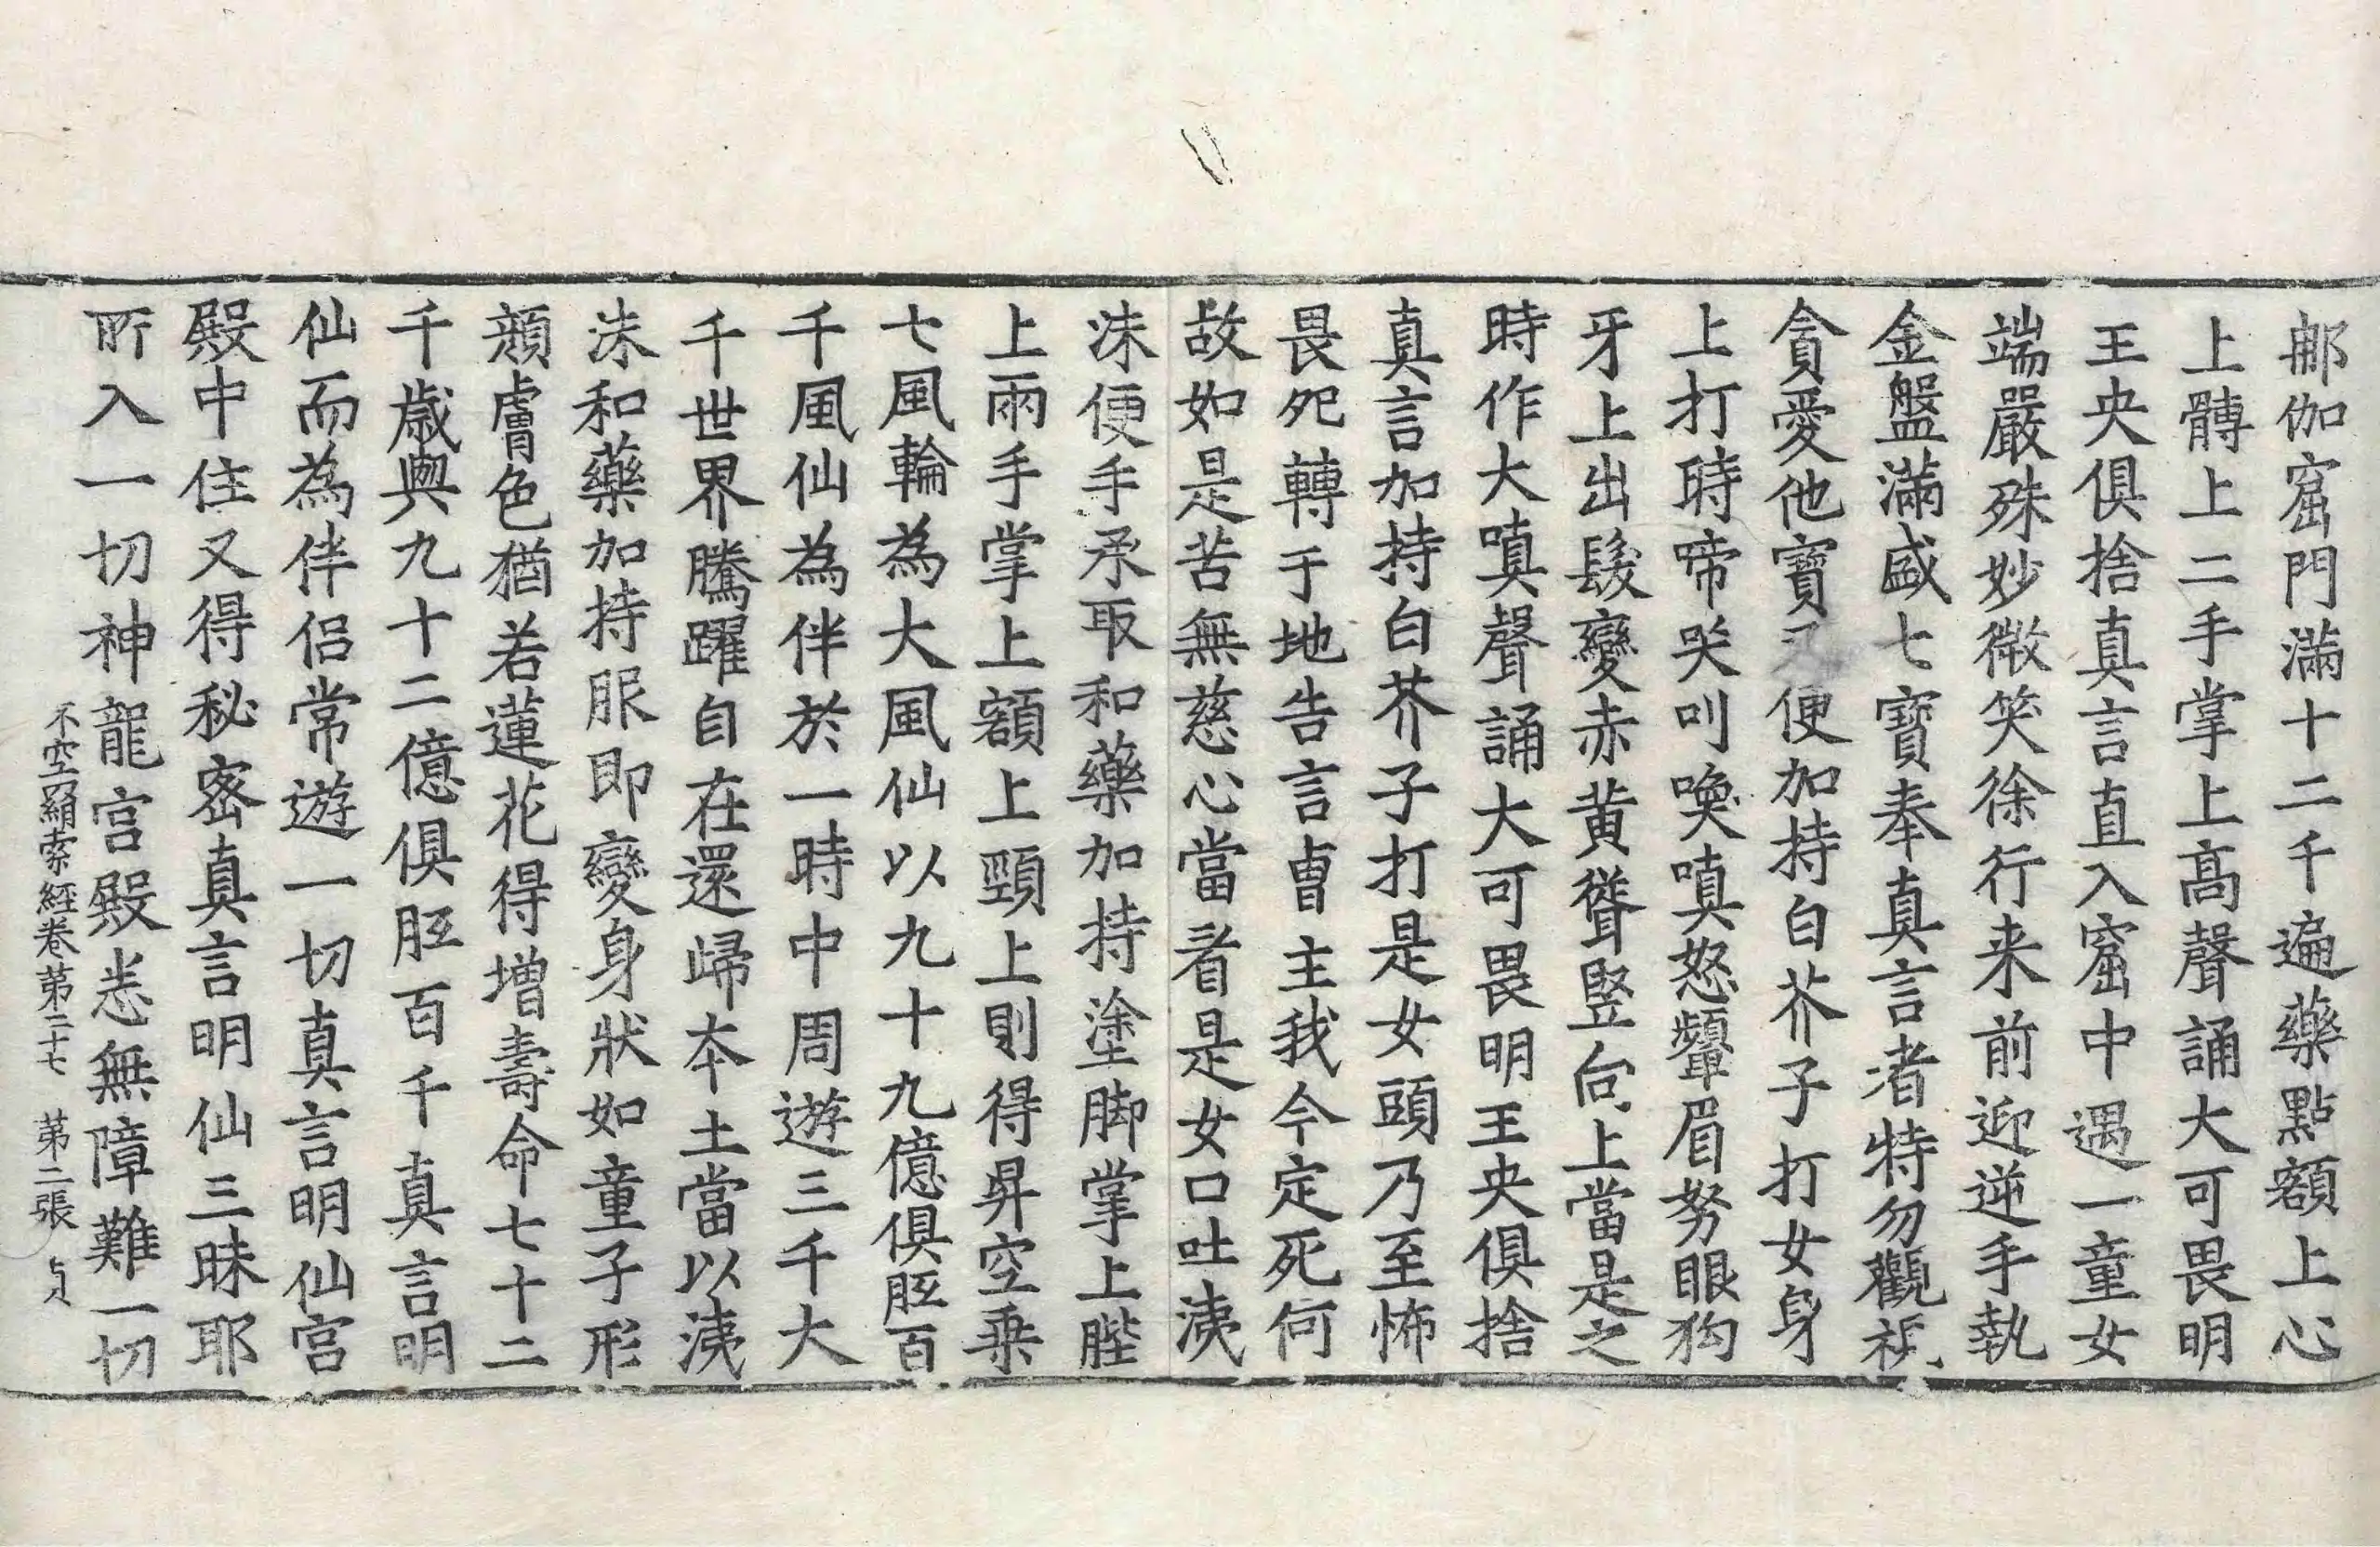 郍伽窟門滿十二千遍藥點額上心
上髆上二手掌上髙聲誦大可畏明
王央俱捨真言直入窟中遇一童女
端嚴殊妙微笑徐行来前迎逆手執
金盤滿盛七寶奉真言者特勿觀視
貪愛他寶又便加持白芥子打女身
上打時啼哭叫喚嗔怒顰眉努眼狗
牙上出髮變赤黄聳竪向上當是之
時作大嗔聲誦大可畏明王央俱捨
真言加持白芥子打是女頭乃至怖
畏死轉于地告言曺主我今定死何
故如是苦無慈心當看是女口吐洟
洡便手承取和藥加持塗脚掌上䏶
上兩手掌上額上頸上則得昇空乗
七風輪為大風仙以九十九億俱胝百
千風仙為伴於一時中周遊三千大
千世界騰躍自在還歸夲土當以洟
洡和藥加持服即變身狀如童子形
顔膚色猶若蓮花得增壽命七十二
千歳與九十二億俱胝百千真言明
仙而為伴侣常遊一切真言明仙宫
殿中住又得秘宻真言明仙三昧耶
所入一切神龍宫殿悉無障難一切
不空羂索經卷第二十七　第二張　貞